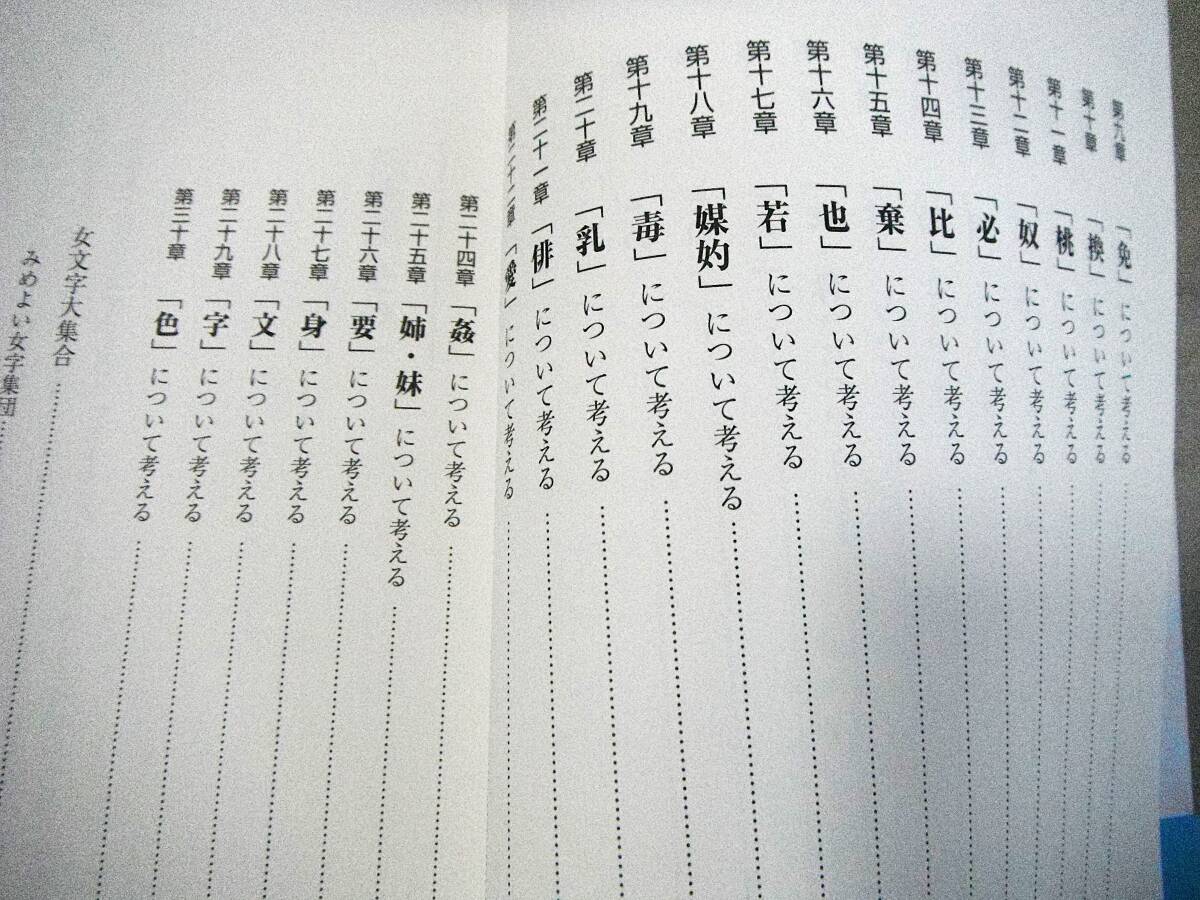 第九章 「免」について考える
第十章 「換」について考える
第十一章 「桃」について考える
第十二章 「奴」について考える
第十三章 「必」について考える
第十四章 「比」について考える
第十五章 「棄」について考える
第十六章 「也」について考える
第十七章 「若」について考える
第十八章 「媒妁」について考える
第十九章 「毒」について考える
第二十章 「乳」について考える
第二十一章 「俳」について考える
第二十二章 「 」について考える
第二十四章 「姦」について考える
第二十五章 「姉・妹」について考える
第二十六章 「要」について考える
第二十七章 「身」について考える
第二十八章 「文」について考える
第二十九章 「字」について考える
第三十章 「色」について考える
女文字大集合
みめよい女字集団